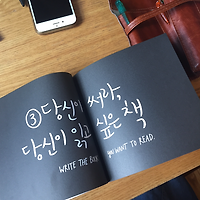 ③당신이 써라,
당신이 읽고 싶은 책
WRITE THE BOOK YOU WANT TO READ.